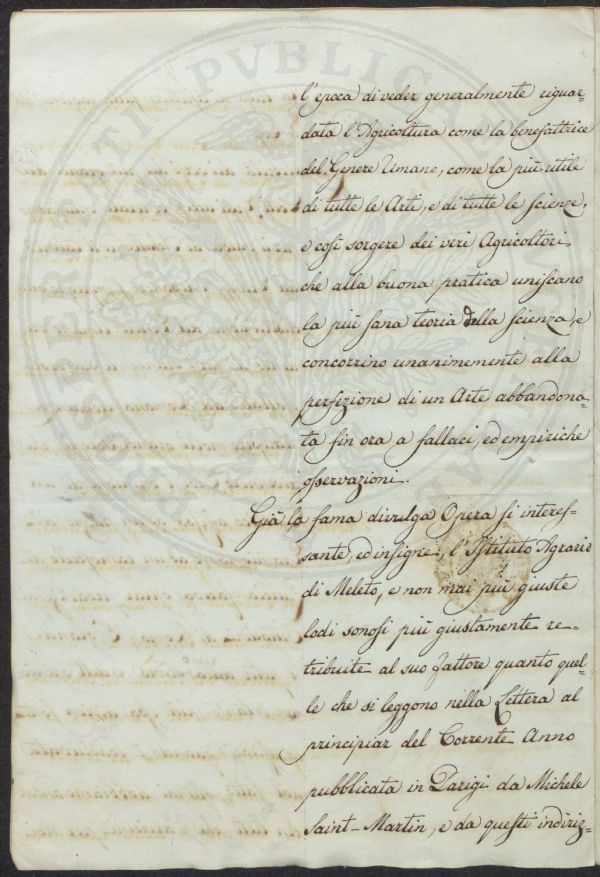 l'epoca di veder generalmente riguar=
data l'Agricoltura come la benefattrice
del Genere Umano, come la più utile
di tutte le Arti, e di tutte le scienze,
e così sorgere dei veri Agricoltori
che alla buona pratica uniscano
la più sana teoria della scienza, e
concorrino unanimemente alla
perfezione di un Arte abbandona=
ta fin ora a fallaci, ed empiriche
osservazioni.
Già la fama divulga Opera sì interes=
sante, ed insigne, l'Istituto Agrario
di Meleto, e non mai più giuste
lodi sonosi più giustamente re=
tribuite al suo fattore quanto quel=
le che si leggono nella Lettera al
principiar del Corrente Anno
pubblicata in Parigi da Michele
Saint-Martin, e da questi indiriz=